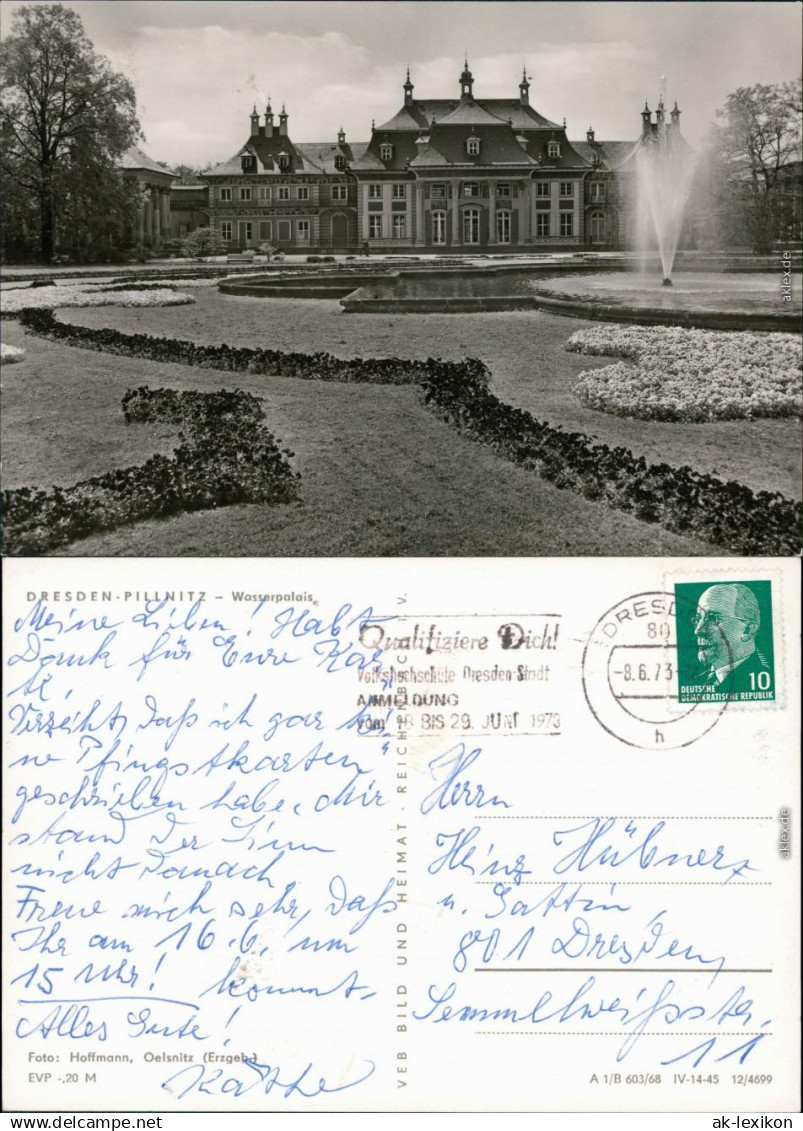 aklex.de
DRESDEN-PILLNITZ – Wasserpalais
Meine Lieben! Habt
Dank für Eure Kar
te.
Verzeiht, daß ich gar kei
ne "Pfingstkarten"
geschrieben habe. Mir
stand der Sinn
nicht danach
Freue mich sehr, daß
Ihr am 16.6. um
15 Uhr! kommt.
Alles Gute!
Käthe
Foto: Hoffmann, Oelsnitz (Erzgeb.)
EVP -,20 M
VEB BILD UND HEIMAT · REICHENBACH i. V.
Qualifiziere Dich!
Volkshochschule Dresden-Stadt
ANMELDUNG
vom 18 BIS 29. JUNI 1973
DRESDEN
80
-8.6.73
h
10
DEUTSCHE
DEMOKRATISCHE REPUBLIK
Herrn
Heinz Hübner
u. Gattin
801 Dresden
Semmelweißstr.
11
A 1/B 603/68 IV-14-45 12/4699
aklex.de
www.ak-lexikon.de
ak-lexikon